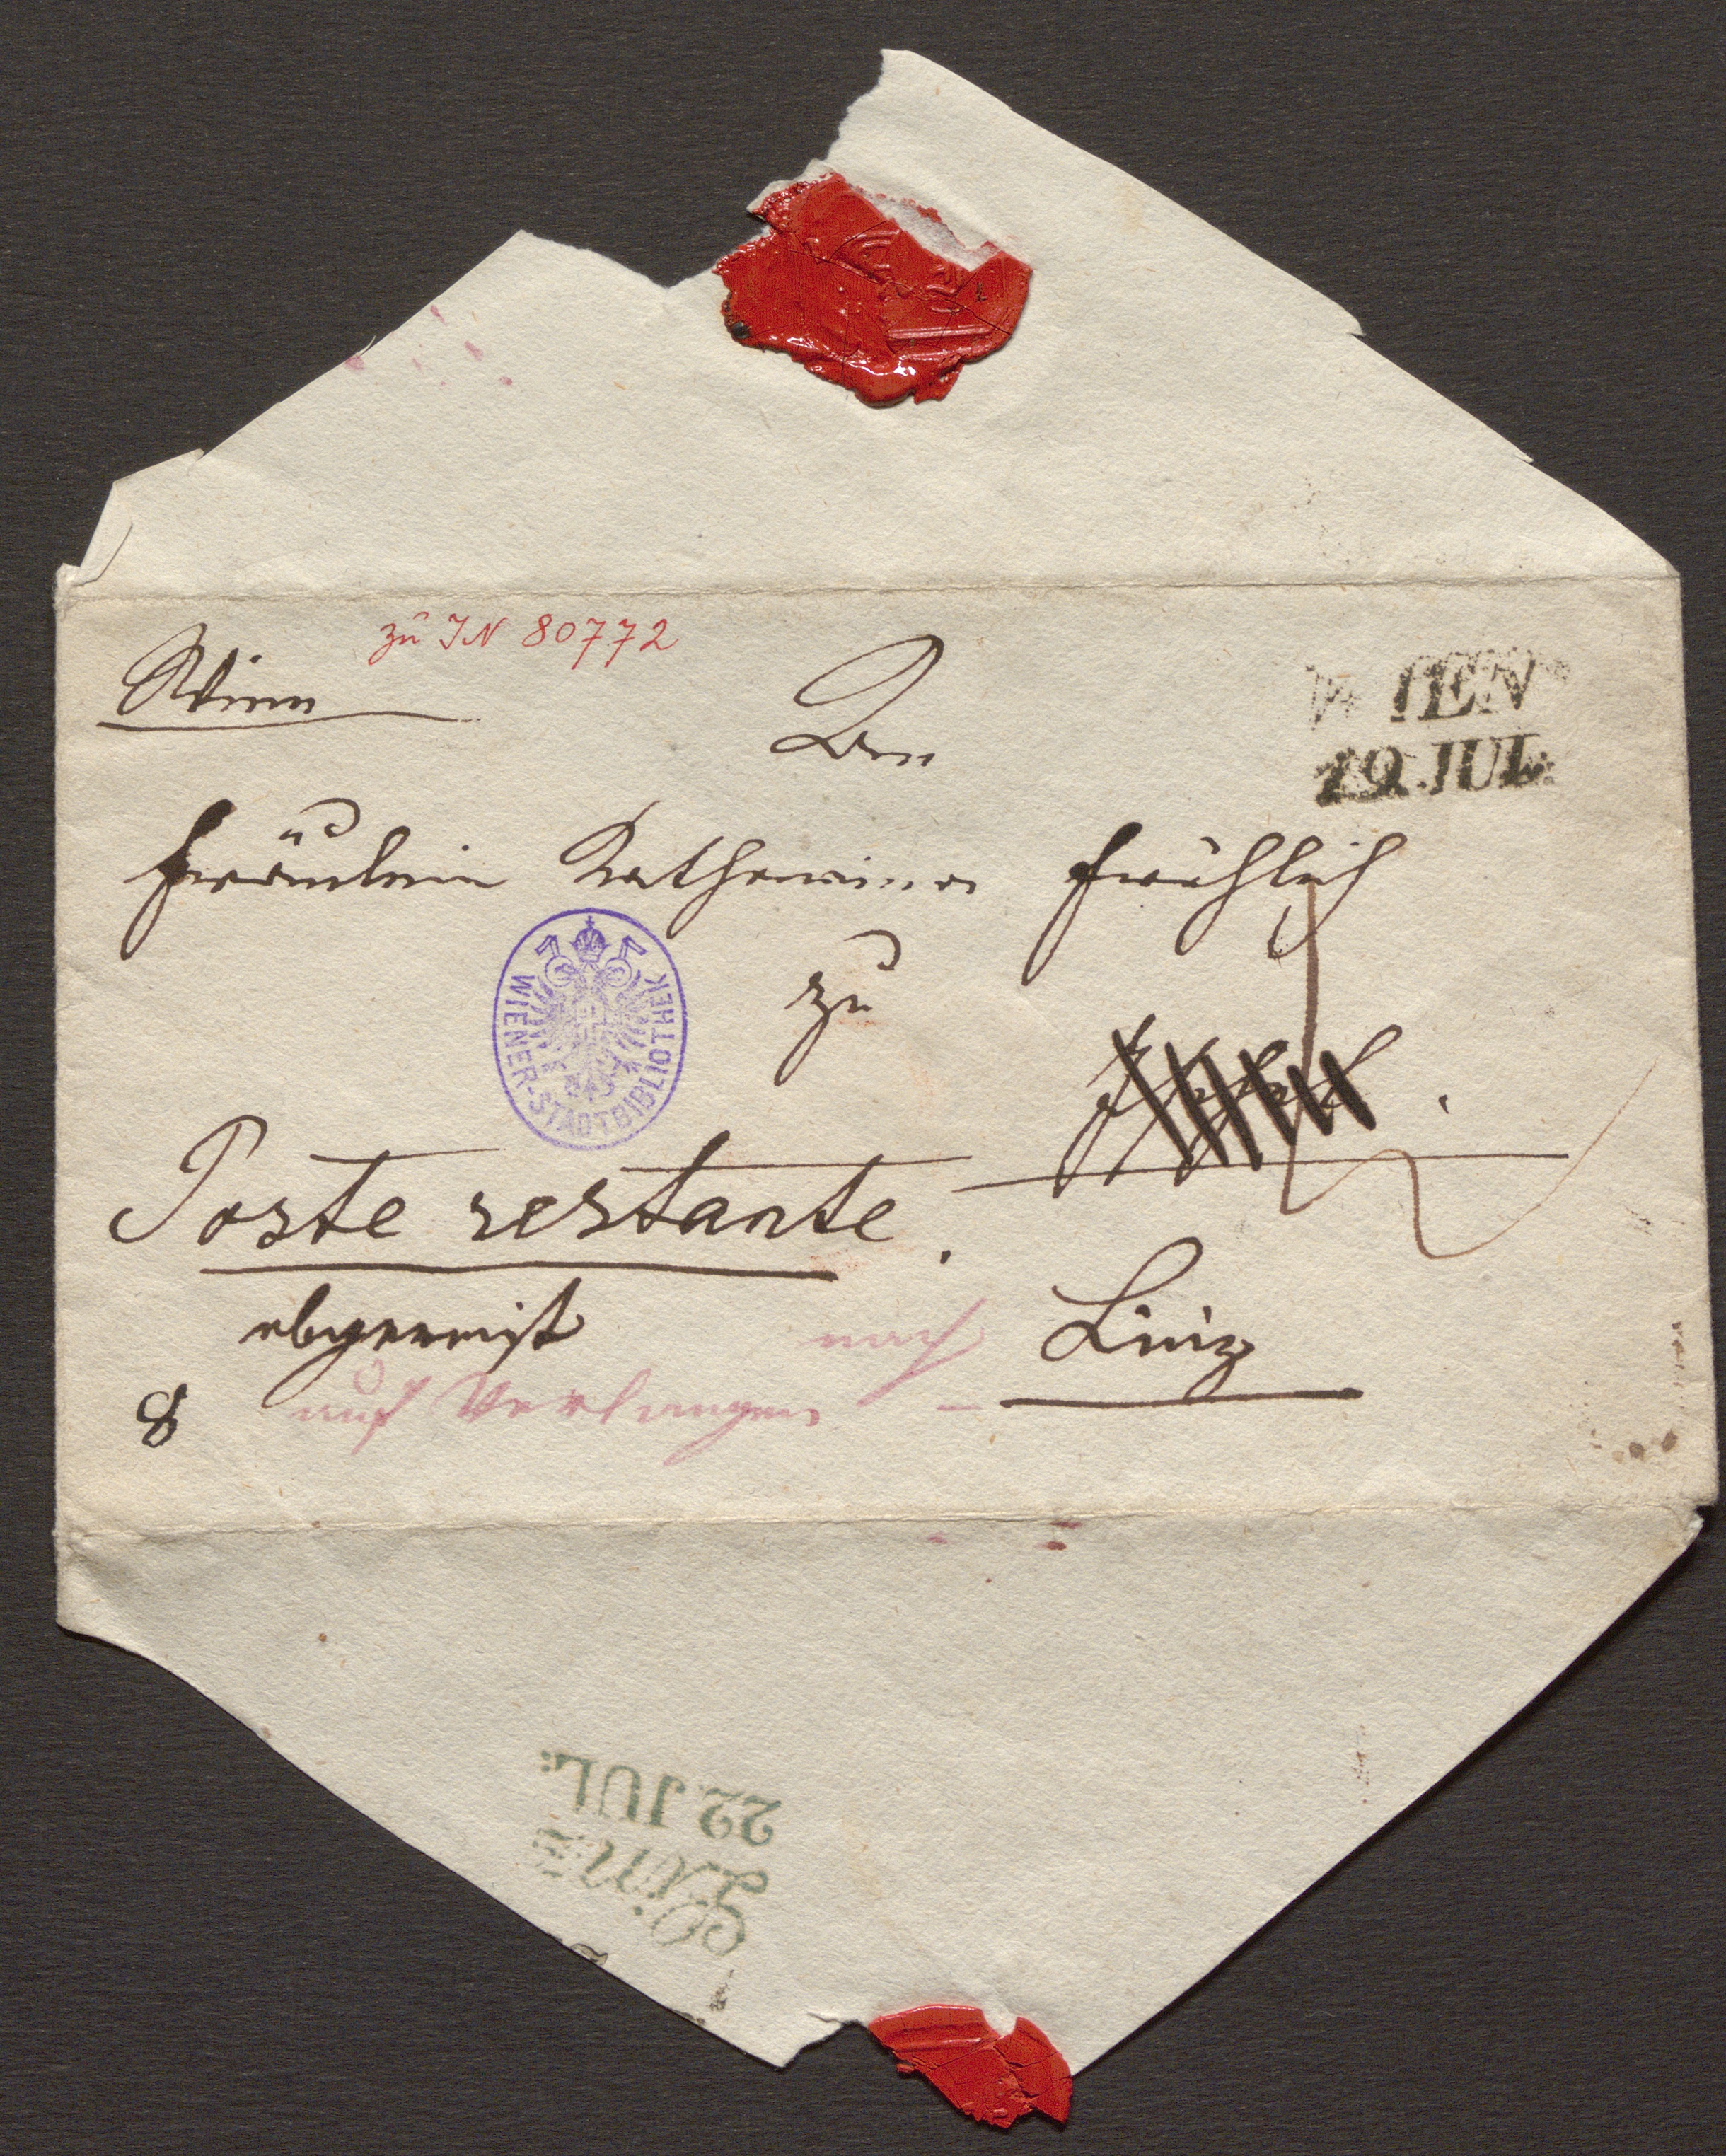 zu IN 80772
Wien
Der
WIEN
19. JUL.
Fräulein Katharina Fröhlich
zu
WIENER-STADTBIBLIOTHEK
Poste restante.
abgereist nach Linz
8 auf Verlangen
22. JUL.
Linz